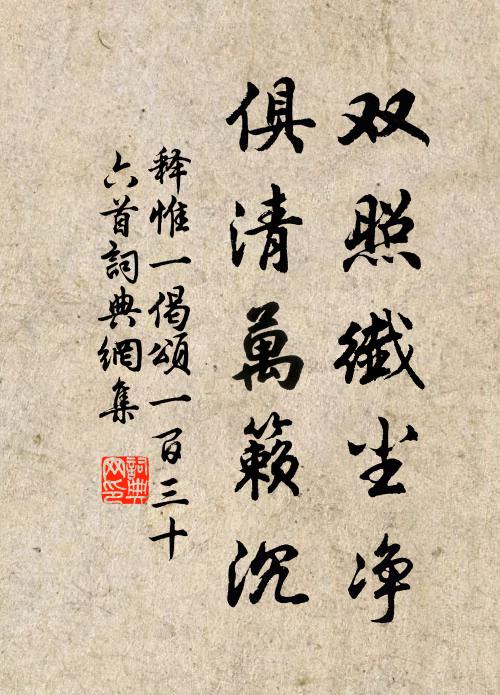 双照纖尘净
俱清萬籟沉
释惟一偈頌一百三十
六首詞典網集
詞典网印